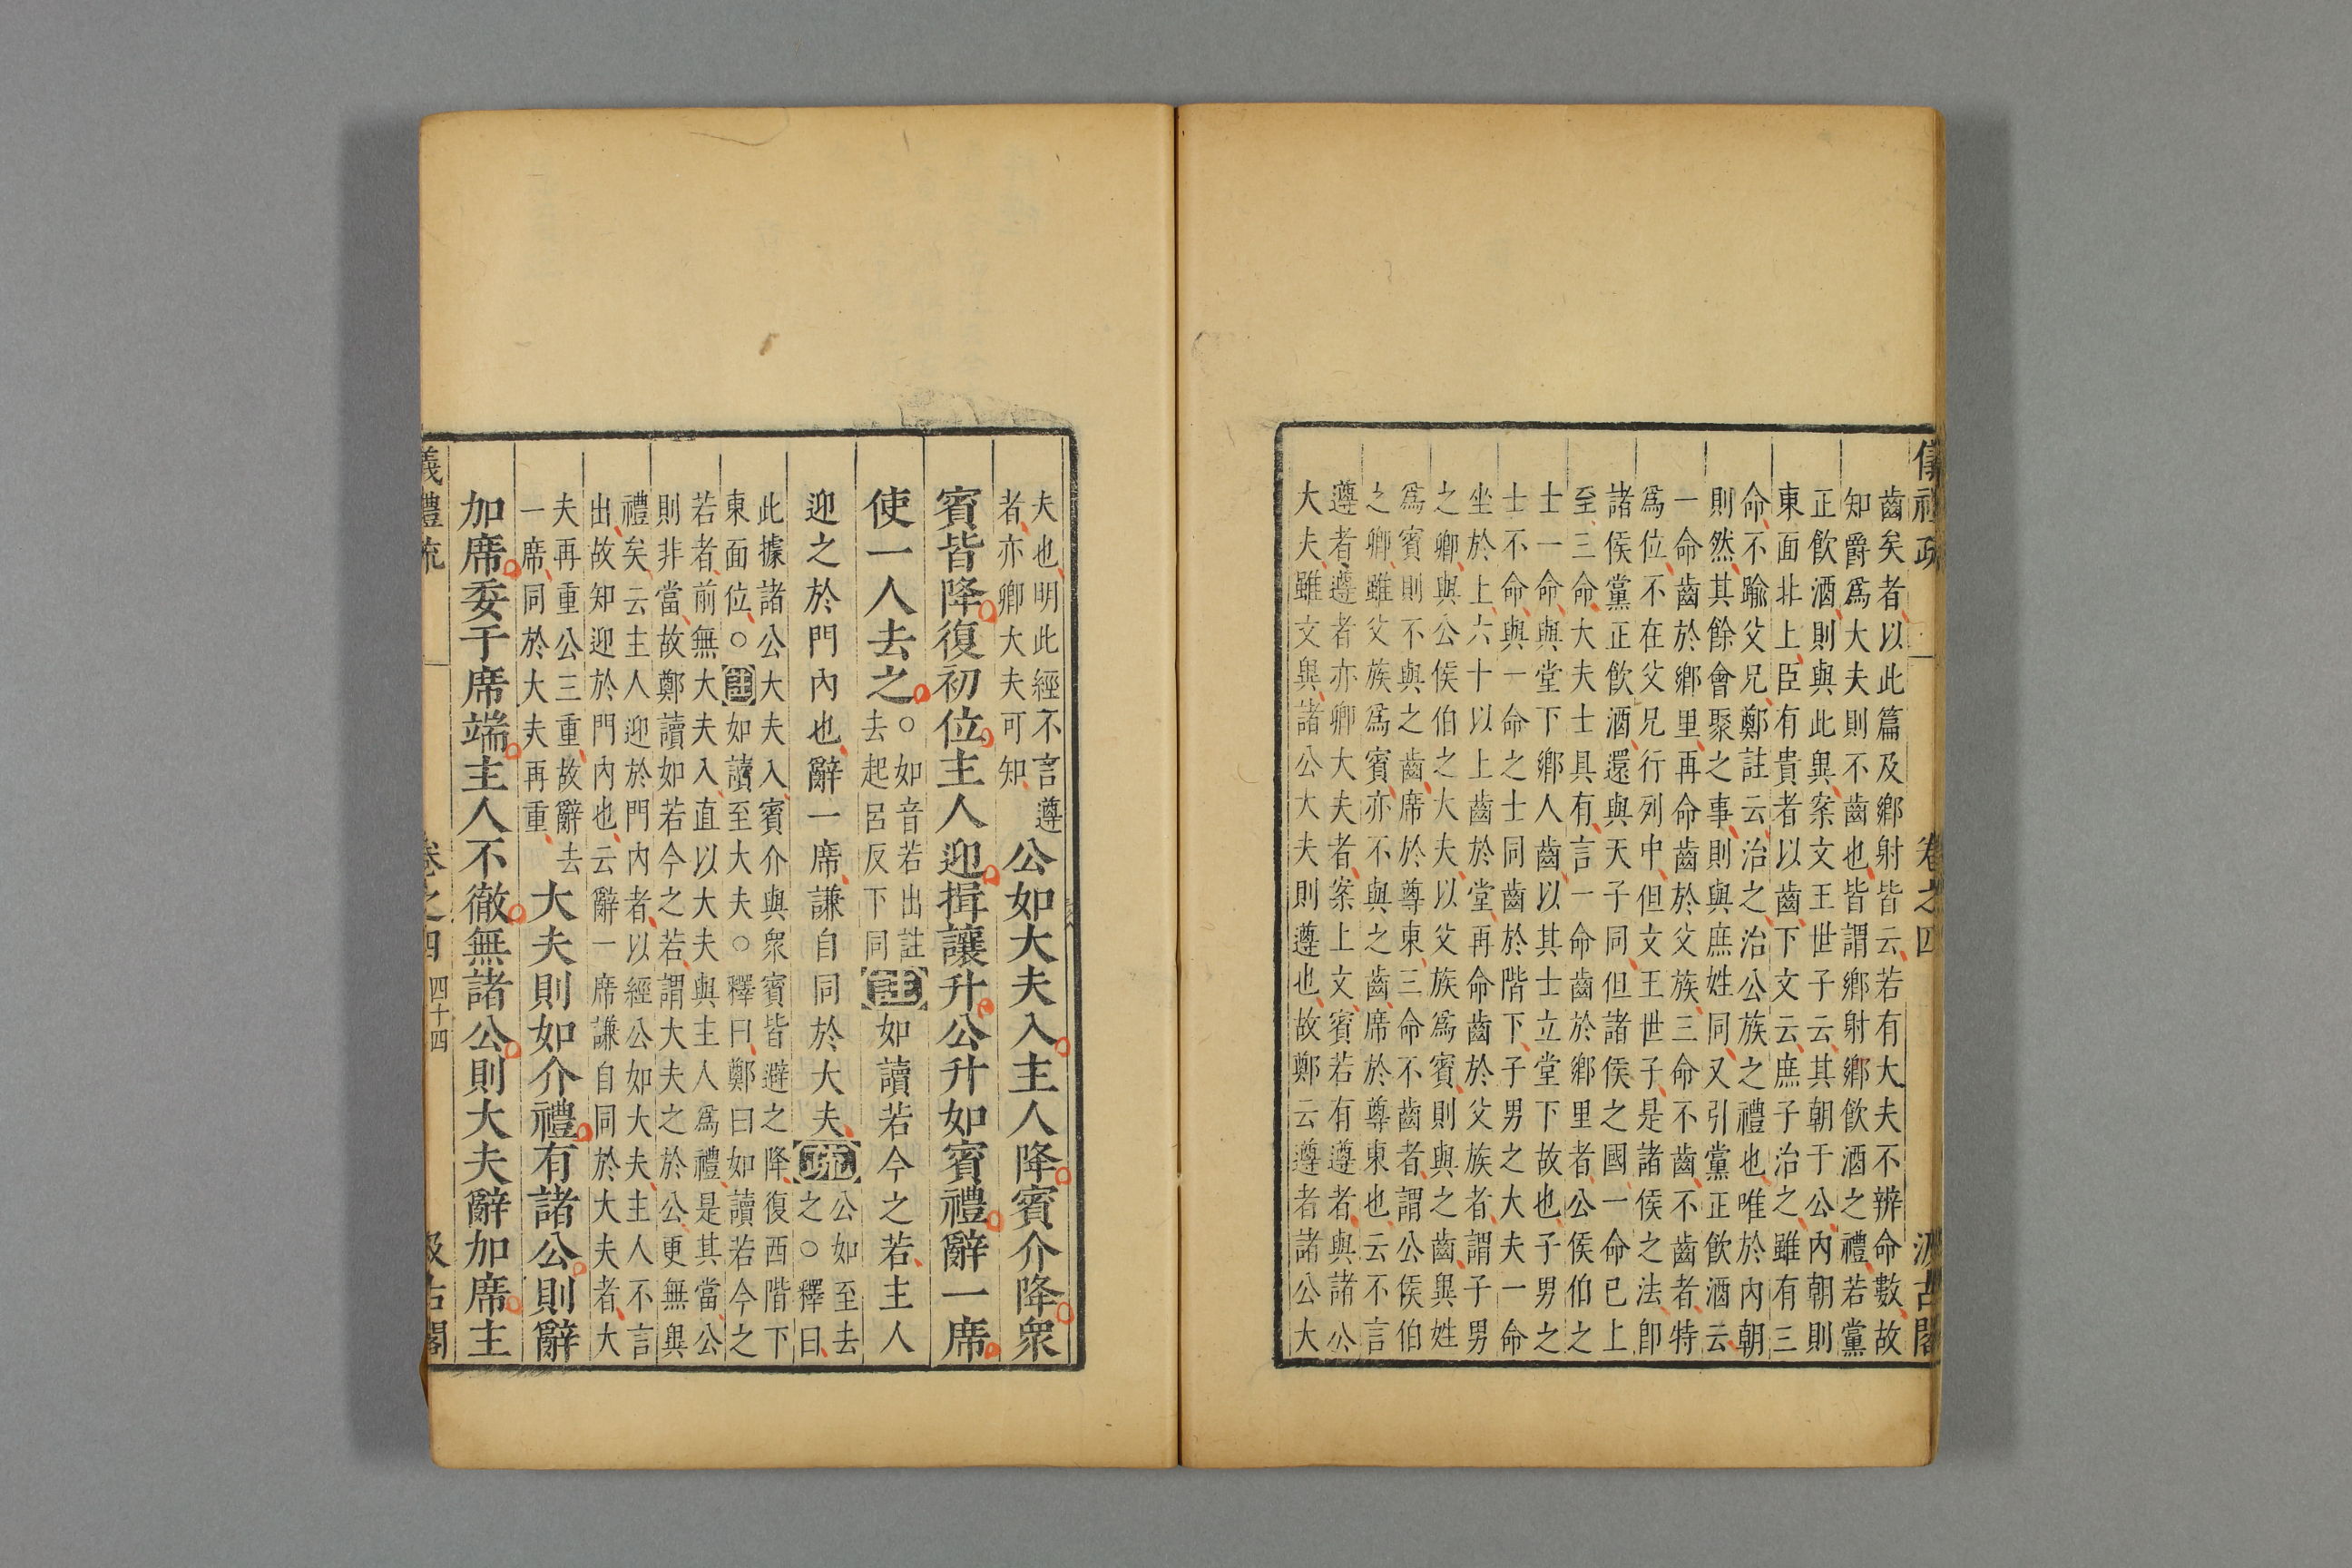 儀禮疏 卷之四 汲古閣
齒矣者以此篇及鄉射皆云若有大夫不辨命數故
知爵爲大夫則不齒也皆謂鄉射鄉飲酒之禮若黨
正飮酒則與此異案文王世子云其朝于公內朝則
東面非上臣有貴者以齒下文云庶子治之雖有三
命不踰父兄鄭註云治之治公族之禮也唯於內朝
則然其餘會聚之事則與庶姓同又引黨正飲酒云
一命齒於鄉里再命齒於父族三命不齒不齒者特
爲位不在父兄行列中但文王世子是諸侯之法卽
諸侯黨正飮酒還與天子同但諸侯之國一命已上
至三命大夫士具有言一命齒於鄉里者公侯伯之
士一命與堂下鄉人齒以其士立堂下故也子男之
士不命與一命之士同齒於階下子男之大夫一命
坐於上六十以上齒於堂再命齒於父族者謂子男
之卿與公侯伯之大夫以父族爲賓則與之齒異姓
爲賓則不與之齒席於尊東三命不齒者謂公侯伯
之卿雖父族爲賓亦不與之齒席於尊東也云不言
遵者遵者亦卿大夫者案上文賓若有遵者與諸公
大夫雖文異諸公大夫則遵也故鄭云遵者諸公大
夫也明此經不言遵
者亦卿大夫可知
公如大夫入主人降賓介降衆
賓皆降復初位主人迎揖讓升公升如賓禮辭一席
使一人去之
○如音若出註
去起呂反下同
註如讀若今之若主人
迎之於門內也辭一席謙自同於大夫疏
公如至去
之○釋曰
此據諸公大夫入賓介與衆賓皆避之降復西階下
東面位○註如讀至大夫○釋曰鄭曰如讀若今之
若者前無大夫入直以大夫與主人爲禮是其當公
則非當故鄭讀如若今之若謂大夫之於公更無異
禮矣云主人迎於門內者以經公如大夫主人不言
出故知迎於門內也云辭一席謙自同於大夫者大
夫再重公三重故辭去
一席同於大夫再重
大夫則如介禮有諸公則辭
加席委于席端主人不徹無諸公則大夫辭加席主
儀禮疏 卷之四 四十四 汲古閣